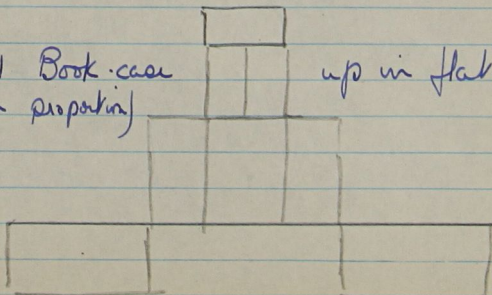 Book-case up in flat
proportion)